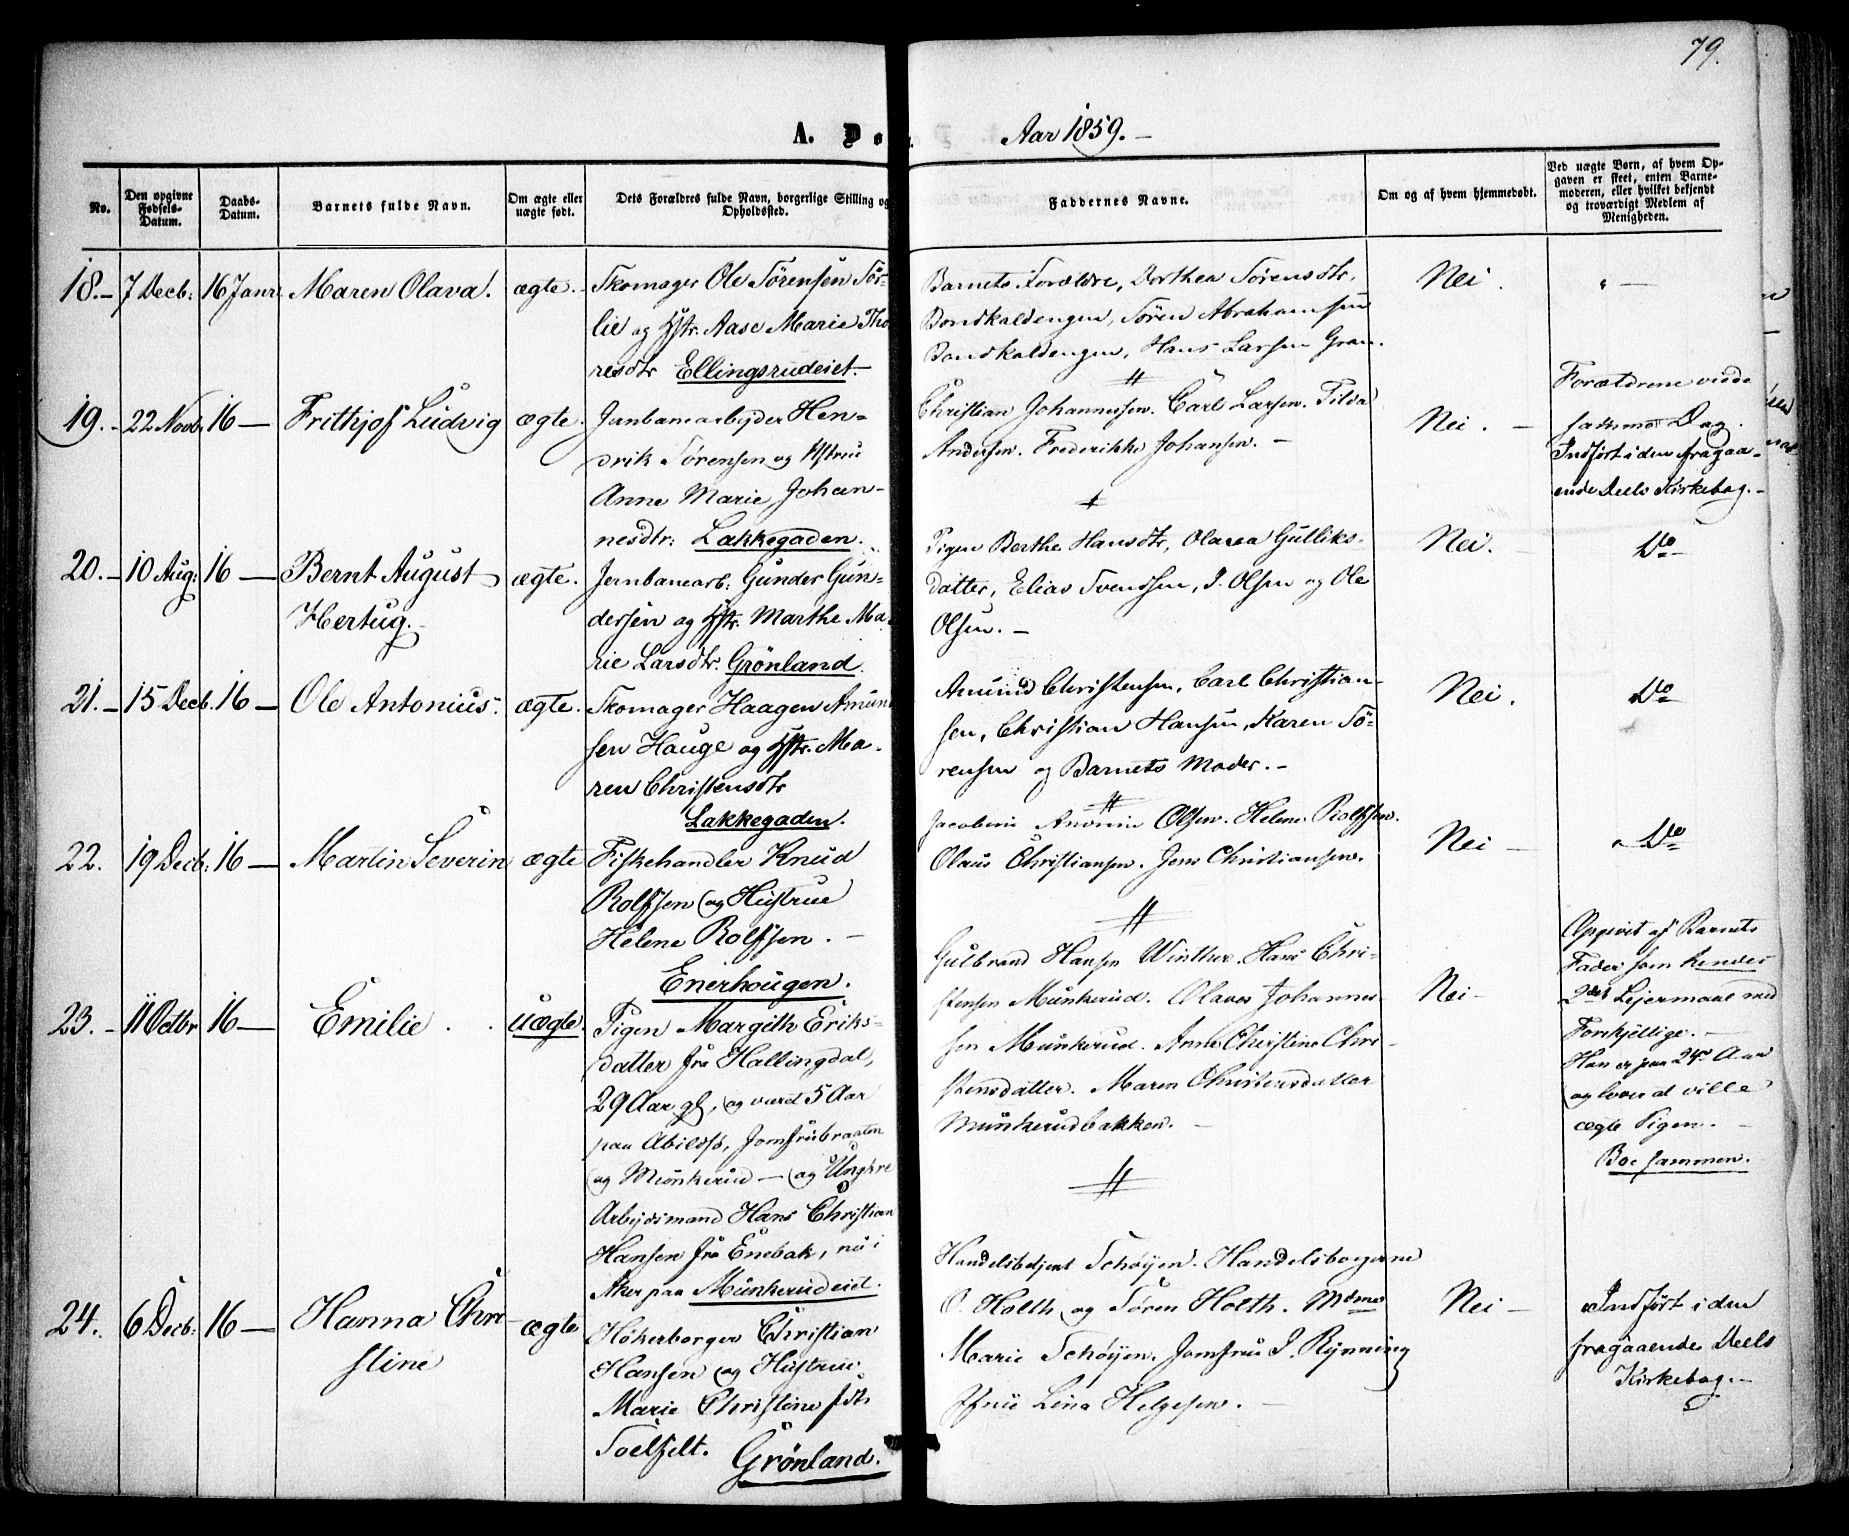 79.
A. Dø
Aar 1859.-
No.
Den opgivne Fødsels-Datum.
Daabs-Datum.
Barnets fulde Navn.
Om ægte eller uægte født.
Dets Forældres fulde Navn, borgerlige Stilling og Opholdssted.
Faddernes Navne.
Om og af hvem hjemmedøbt.
Ved uægte Børn, af hvem Opgaven er skeet, enten Barnemoderen, eller hvilket bekjendt og troværdigt Medlem af Menigheden.
18.- 7 Decb: 16 Janr. Maren Olava. ægte.-
Skomager Ole Sørensen Sør-
lie og Hstr. Aase Marie Tho
resdtr Ellingsrudeiet.-
Barnets Forældre, Dorthea Sørensdtr,
Bondkaldengen, Søren Abrahamsen
Bondkaldengen, Hans Larsen Gran.
Nei.
" -
19.- 22 Novb. 16 - Frithjof Ludvig ægte.
Jernbanearbejder Hen-
drik Sørensen og Hstru
Anne Marie Johan-
nesdtr: Lakkegaden.
Christian Johannessen. Carl Larsen. Tilda
Andersen. Frederikke Johansen.-
Nei. -
Forældrene viede
samme Dag.
Indført i den fragaa-
ende Deels Kirkebog.-
20.- 10 Aug: 16 - Bernt August
Hertug.- ægte.
Jernbanearb: Gunder Gun-
dersen og Hstr. Marthe Ma-
rie Larsdtr. Grönland.
Pigen Berthe Hansdtr, Olava Gulliks-
datter, Elias Svendsen, I. Olsen og Ole
Olsen.-
Nei.
Do-
21.- 15 Decb. 16 - Ole Antonius. ægte.
Skomager Haagen Amun
sen Hauge og Hstr. Ma-
ren Christensdtr
Lakkegaden.
Amund Christensen, Carl Christian-
sen, Christian Hansen, Karen Sö-
rensen og Barnets Moder.-
Nei.
Do
22. 19 Decb: 16 - Martin Severin ægte
Fiskehandler Knud
Rolfsen og Hustrue
Helene Rolfsen. -
Enerhougen.
Jacobine Olsen. Helene Rolfsen.
Olaus Christiansen. Jens Christiansen.
Nei -
" Do
23.- 11 Octbr 16 - Emilie. . uægte.
Pigen Margith Eriks-
datter fra Hallingdal,
29 Aar gl, og været 5 Aar
paa Abildsø, Jomfrubraaten
og Munkerud - og Ungkrl
Arbejdsmand Hans Christian
Hansen fra Enebak, nu i
Aker paa Munkerudeiet.
Gulbrand Hansen Winther. Hans Chri-
stensen Munkerud. Olaves Johannes-
sen Munkerud. Anne Christine Chri-
stensdatter. Maren Christensdatter
Munkerudbakken. -
Nei -
Opgivet af Barnets
Fader som hendes
2det Lejermaal med
Forskjellige.-
Han er paa 24de Aar
og lover at ville
ægte Pigen. -
Boe sammen.
24. 6 Decb: 16 - Hanna Chri-
stine ægte
Høkerborger Christian
Hansen og Hustrue
Marie Christine f.
Toelfelt. Grønland.
Handelsbetjent Schøyen. Handelsborgerne
O. Holth og Søren Holth. Mdme
Marie Schøyen. Jomfru I. Rynning
Jfrue Lina Helgesen. -
Nei -
Indført i den
fragaaende Deels
Kirkebog.-